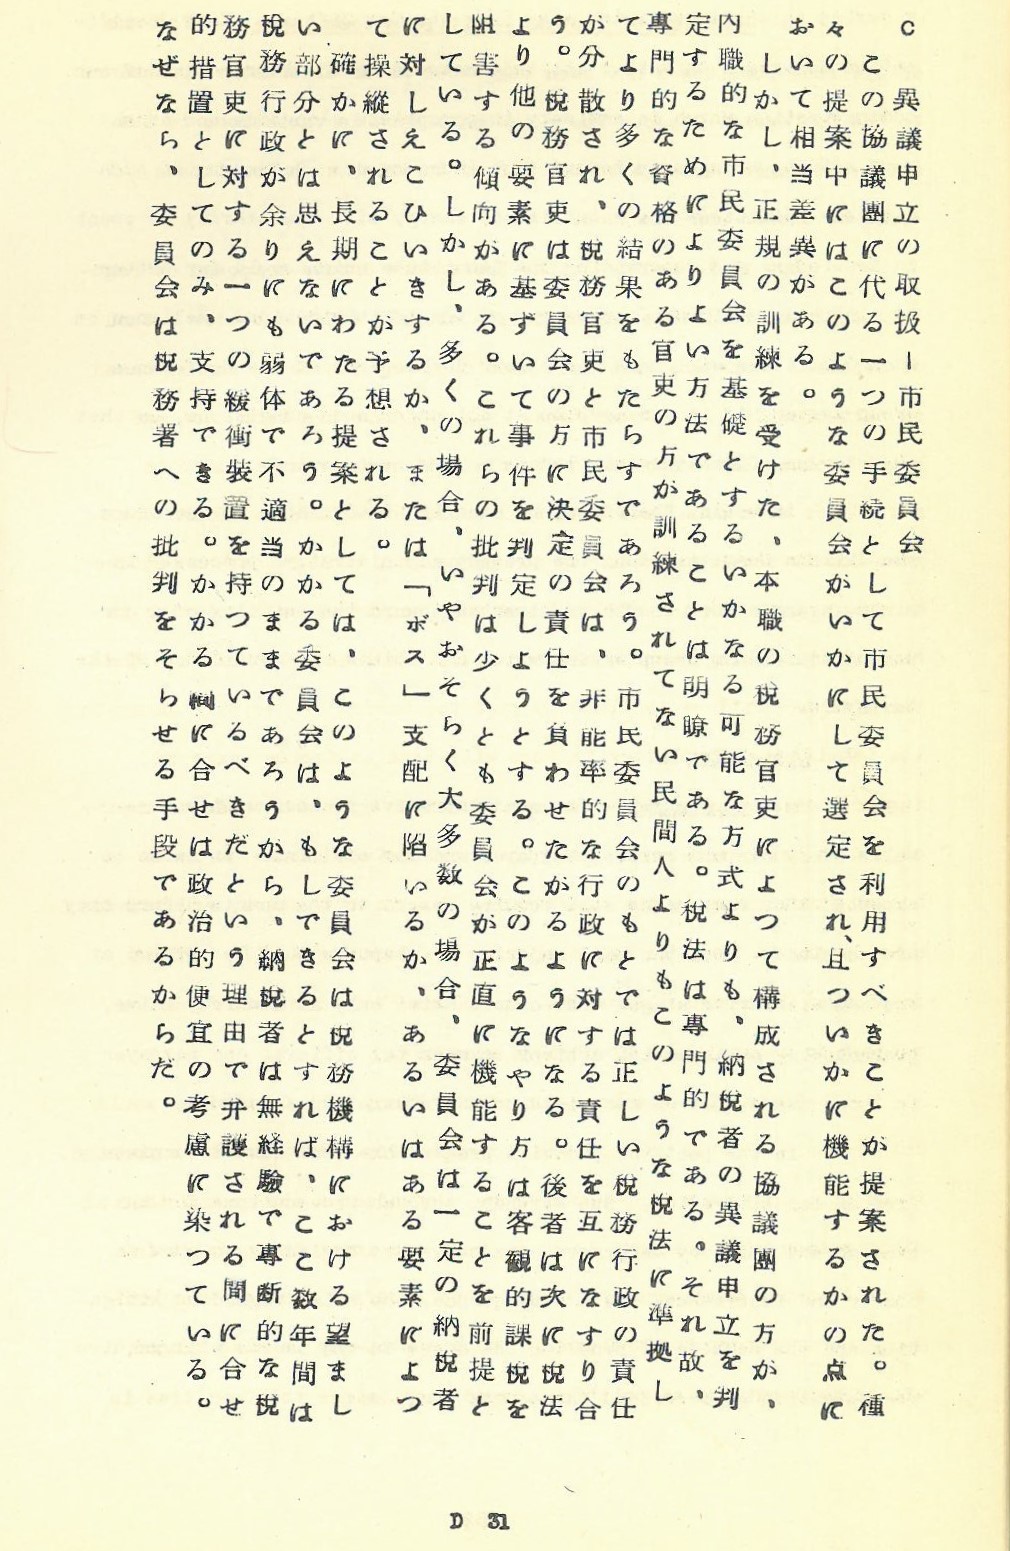 C 異議申立の取扱ー市民委員会
この協議團に代る一つの手続として市民委員会を利用すべきことが提案された。種
々の提案中にはこのような委員会がいかにして選定され、且ついかに機能するかの点に
おいて相当差異がある。
しかし、正規の訓練を受けた、本職の税務官吏によつて構成される協議團の方が、
内職的な市民委員会を基礎とするいかなる可能な方式よりも、納税者の異議申立を判
定するためによりよい方法であることは明瞭である。税法は專門的である。それ故、
專門的な資格のある官吏の方が訓練されてない民間人よりもこのような税法に準拠し
てより多くの結果をもたらすであろう。市民委員会のもとでは正しい税務行政の責任
が分散され、税務官吏と市民委員会は、非能率的な行政に対する責任を互になすり合
う。税務官吏は委員会の方に決定の責任を負わせたがるようになる。後者は次に税法
より他の要素に基ずいて事件を判定しようとする。このようなやり方は客観的課税を
阻害する傾向がある。これらの批判は少くとも委員会が正直に機能することを前提と
している。しかし、多くの場合、いやおそらく大多数の場合、委員会は一定の納税者
に対しえこひいきするか、または「ボス」支配に陥いるか、あるいはある要素によつ
て操縦されることが予想される。
確かに、長期にわたる提案としては、このような委員会は税務機構における望まし
い部分とは思えないであろう。かかる委員会は、もしできるとすれば、ここ数年間は
税務行政が余りにも弱体で不適当のままであろうから、納税者は無経験で專断的な税
務官吏に対する一つの緩衝装置を持つているべきだという理由で弁護される間に合せ
的措置としてのみ、支持できる。かかる間に合せは政治的便宜の考慮に染つている。
なぜなら、委員会は税務署への批判をそらせる手段であるからだ。
D 31